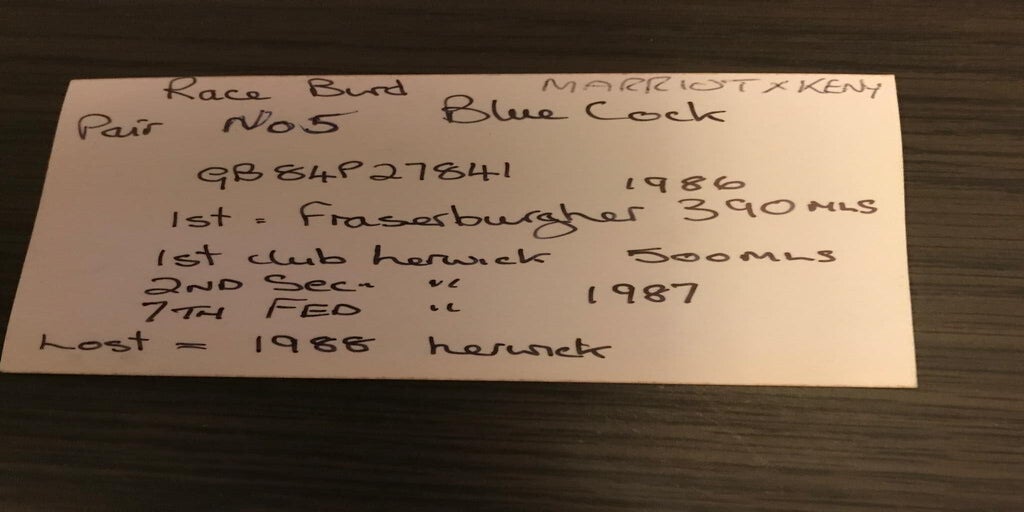 Race Burd MARRIOT X KENY
Pair No5 Blue Cock
GB84P27841
1986
1st = Fraserburgher 390MLS
1st club herwick 500MLS
2ND Sec- "
1987
7TH FED "
Lost = 1988 herwick